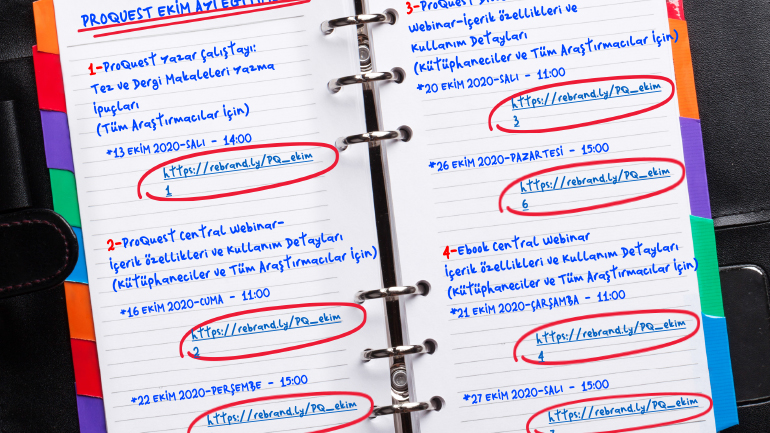 PROQUEST EKİM AYI
1-ProQuest Yazar Çalıştayı:
Tez ve Dergi Makaleleri Yazma
İpuçları
(Tüm Araştırmacılar İçin)
*13 EKİM 2020-SALI - 14:00
https://rebrand.ly/PQ_ekim
1
2-ProQuest Central Webinar-
İçerik Özellikleri ve Kullanım Detayları
(Kütüphaneciler ve Tüm Araştırmacılar İçin)
*16 EKİM 2020-CUMA - 11:00
https://rebrand.ly/PQ_ekim
2
*22 EKİM 2020-PERŞEMBE - 15:00
https://rebrand.ly/PQ_ekim
3-ProQuest
Webinar-İçerik Özellikleri ve
Kullanım Detayları
(Kütüphaneciler ve Tüm Araştırmacılar İçin)
*20 EKİM 2020-SALI - 11:00
https://rebrand.ly/PQ_ekim
3
*26 EKİM 2020-PAZARTESİ - 15:00
https://rebrand.ly/PQ_ekim
6
4-Ebook Central Webinar
İçerik Özellikleri ve Kullanım Detayları
(Kütüphaneciler ve Tüm Araştırmacılar İçin)
*21 EKİM 2020-ÇARŞAMBA - 11:00
https://rebrand.ly/PQ_ekim
4
*27 EKİM 2020-SALI - 15:00
https://rebrand.ly/PQ_ekim